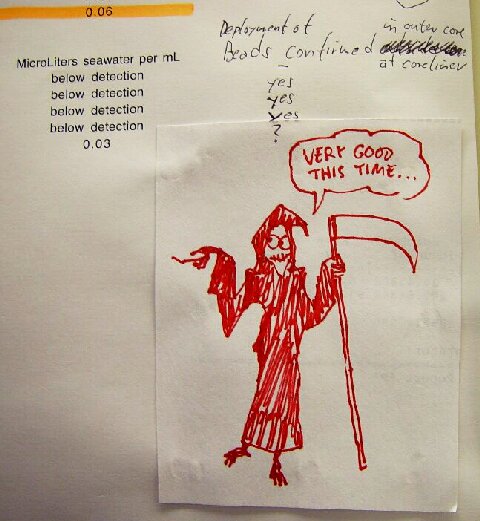 0.06
Deployment of
Beads confirmed
in outer core
at coreliner
MicroLiters seawater per mL
below detection
below detection
below detection
below detection
0.03
–
yes
yes
yes
?
VERY GOOD
THIS TIME...